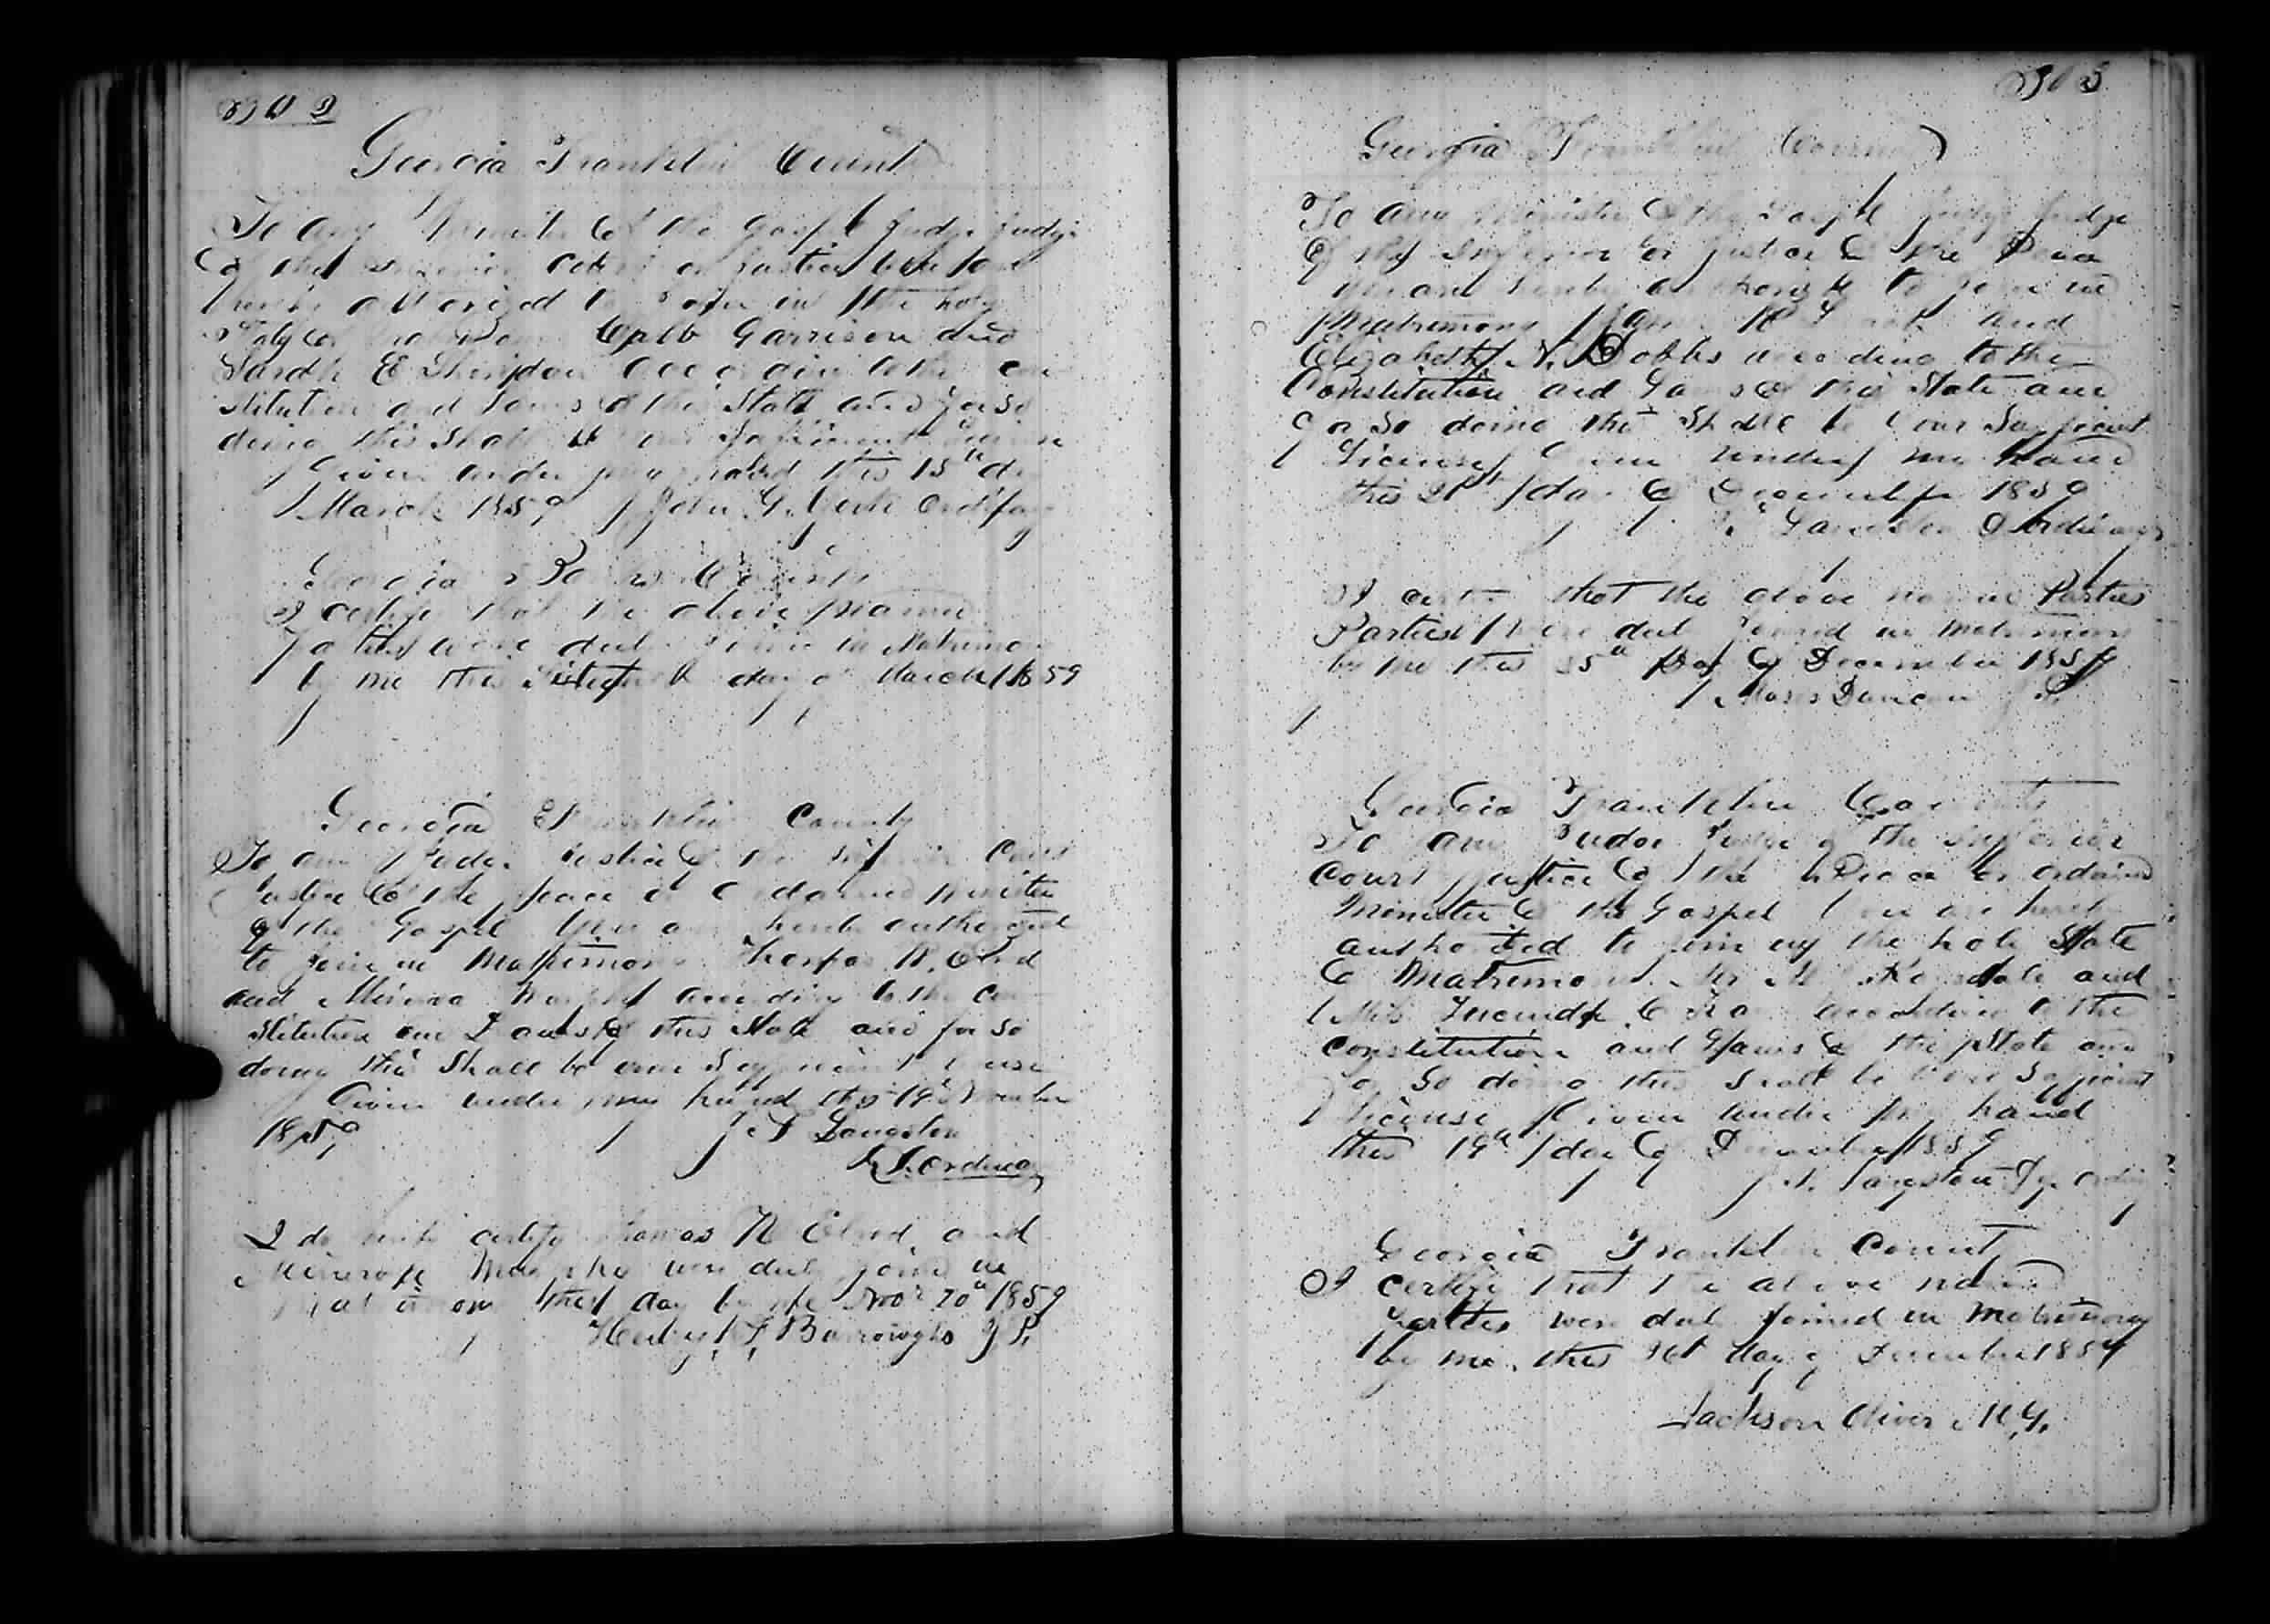 302
Georgia Franklin County
To any Minister of the Gospel Judge Judge
of the Court or Justice
authorized to Join in the holy
State of Garrison and
Sarah E Sheridan According to the con
stitution and Laws of this State and for so
doing this Shall be your Sufficient License
Given under my hand this 15th day
March 1859 John G. Ordinary
Georgia County
I certify that the above named
Parties were duly Joined in Matrimony
by me this day of March 1859
Georgia Franklin County
To any Judge Justice of the Inferior Court
Justice of the peace or Ordained Minister
of the Gospel You are hereby authorized
to Join in Matrimony Thomas N. Elrod
and Minerva Murphy according to the con
stitution and Laws of this State and for so
doing this Shall be your Sufficient License
Given under my hand this 19th November
1859 Langston
Ordinary
I do hereby certify Thomas N Elrod and
Minerva Murphy were duly joined in
Matrimony this day by me Nov 20th 1859
Henry F. Burroughs J P.
303
Georgia Franklin County
To any Minister of the Gospel Judge Judge
of the Inferior or Justice of the Peace
You are hereby authorized to Join in
Matrimony and
Elizabeth N. Dobbs according to the
Constitution and Laws of this State and
for So doing this Shall be your Sufficient
License Given under my hand
this 21st day of December 1859
Langston Ordinary
I certify that the above named Parties
Parties were duly Joined in matrimony
by me this 25th Day of December 1859
Moses Duncan J P.
Georgia Franklin County
To any Judge Justice of the Inferior
Court Justice of the Peace or ordained
Minister of the Gospel You are hereby
authorized to join in the holy State
of Matrimony Mr and
Miss according to the
constitution and Laws of this State and
for So doing this Shall be your Sufficient
License Given under my hand
this 19th day of December 1859
Langston Ordinary
Georgia Franklin County
I certify that the above named
parties were duly joined in Matrimony
by me this day of December 1859
Jackson Oliver M. G.